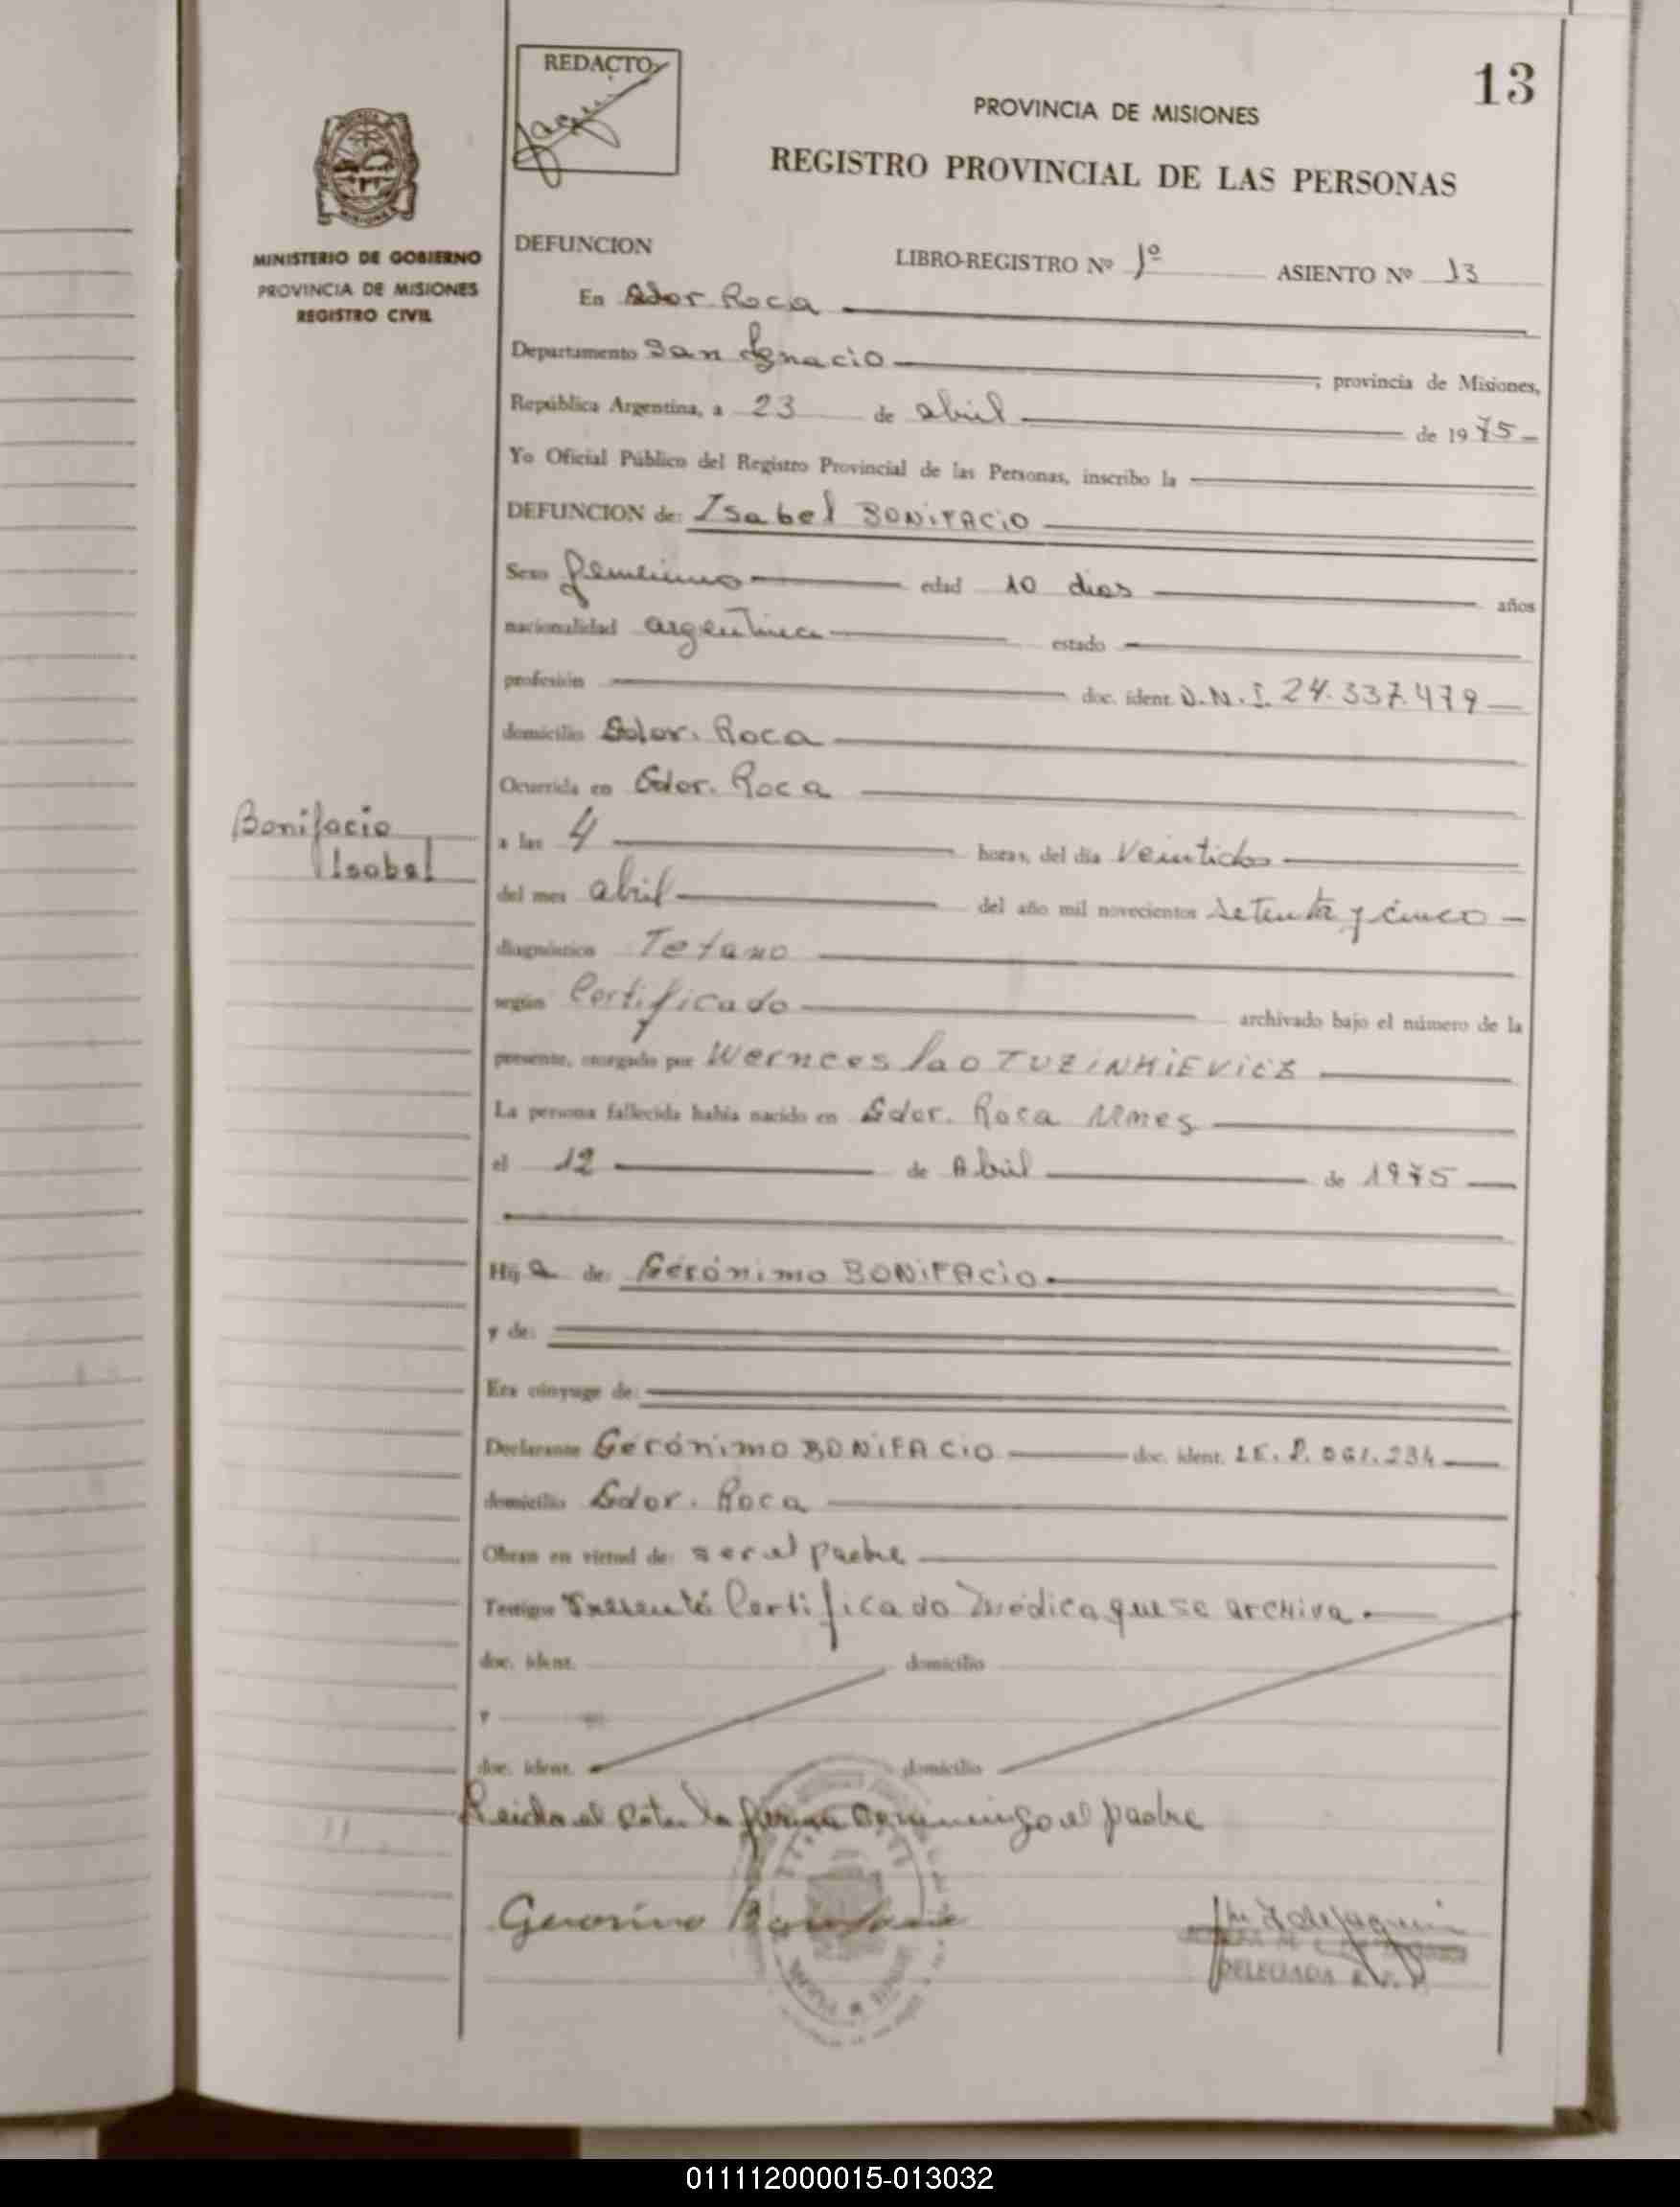 13
REDACTO
PROVINCIA DE MISIONES
REGISTRO PROVINCIAL DE LAS PERSONAS
MINISTERIO DE GOBIERNO
PROVINCIA DE MISIONES
REGISTRO CIVIL
DEFUNCION LIBRO-REGISTRO Nº 1º ASIENTO Nº 13
En Gdor. Roca
Departamento San Ignacio, provincia de Misiones,
República Argentina, a 23 de abril de 1975
Yo Oficial Público del Registro Provincial de las Personas, inscribo la
DEFUNCION de: Isabel BONIFACIO
Sexo femenino edad 10 dias años
nacionalidad argentina estado
profesión doc. ident. D.N.I. 24.337.479
domicilio Gdor. Roca
Ocurrida en Gdor. Roca
Bonifacio
Isabel
a las 4 horas, del día veintidos
del mes abril del año mil novecientos setenta y cinco
diagnóstico Tetano
según Certificado archivado bajo el número de la
presente, otorgado por Wernceslao TUZINKIEVICZ
La persona fallecida había nacido en Gdor. Roca Mnes
el 12 de Abril de 1975
Hija de: Gerónimo BONIFACIO.
y de:
Era cónyuge de:
Declarante Gerónimo BONIFACIO doc. ident. LE.
domicilio Gdor. Roca
Obran en virtud de: ser el padre
Testigos Presentó Certificado Médica que se archiva.
doc. ident. domicilio
y
doc. ident. domicilio
Leida el la firma el padre
Geronimo
DELEGADA
011112000015-013032